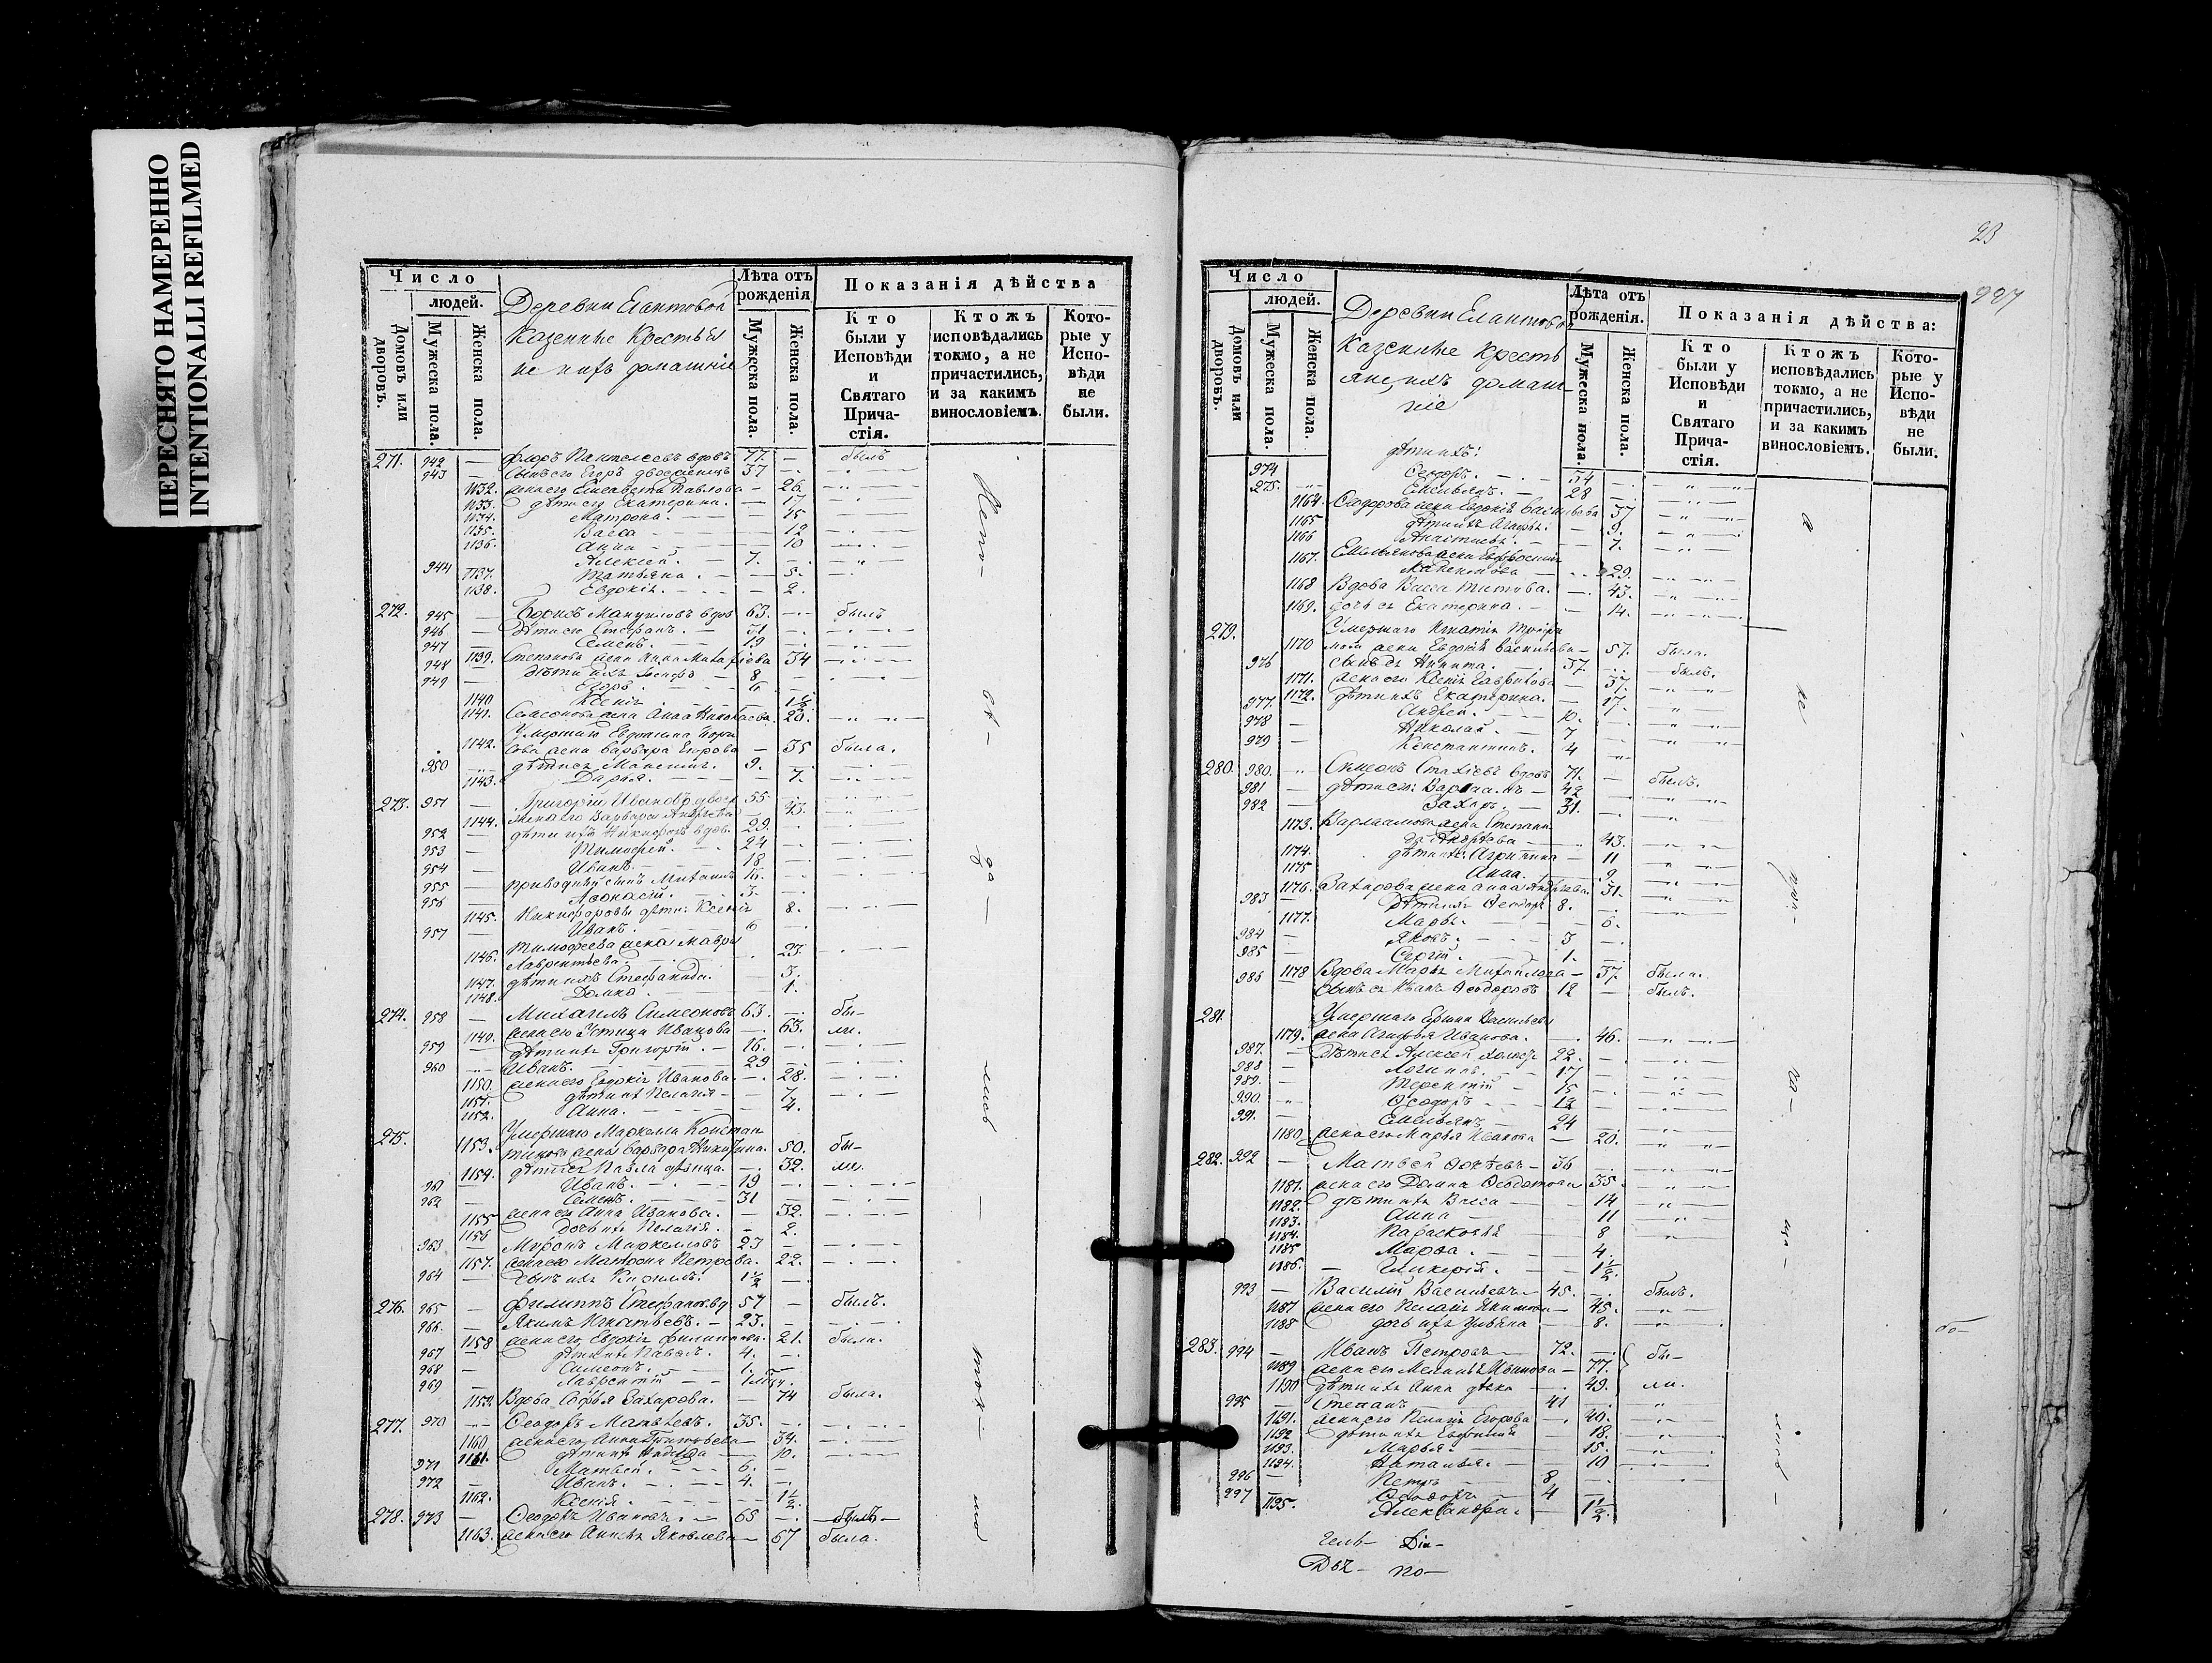 ПЕРЕСНЯТО НАМЕРЕННО
INTENTIONALLI REFILMED
Число
людей.
Домовъ или дворовъ.
Мужеска пола.
Женска пола.
Деревни Елантовой
Казенные Крестья
не ихъ домашніе
Лѣта отъ рожденія
Мужеска пола.
Женска пола.
Показанія дѣйства
Кто были у Исповѣди и Святаго Прича-стія.
Ктожъ исповѣдались токмо, а не причастились, и за какимъ винословіемъ.
Кото-рые у Испо-вѣди не были.
271. 942 — Флоръ Пантелеевъ вдовъ 77. — былъ
943 — сынъ его Егоръ двоеженецъ 37 —
1132. жена его Елисавета Павлова — 26.
1133. дѣти его Екатерина. — 17
1134. Матрона. — 15
1135. Васса — 12
1136. Анна — 10
944 Алексѣй. — 7. —
1137. Татьяна. — 5.
1138. Евдокія. — 2.
272. 945 — Борисъ Мануиловъ вдов 63. — былъ
946 — дѣти его Стефанъ. — 31 —
947 — Семенъ. — 19 —
1139. Степанова жена Анна Михайлева 34
948 — дѣти ихъ 8 —
949 — Егоръ. — 6
1140 Ксенія — 1½
1141. Семенова жена Анна Николаева. 20.
Умершаго
1142. сова жена Варвара Егорова — 35 была.
950 — дѣти ея Максимъ. 9. —
1143. Дарья. — 7.
273. 951 — Григорій Ивановъ двоеж 55 —
1144. жена его Варвара Андреева 43.
952 — дѣти ихъ Никифоръ вдов. 29. —
953 — Тимофей. — 24 —
954 — Иванъ. — 18 —
955 — приводный сынъ Михаилъ 16. —
956 — Афонасій. — 3. —
1145. Никифоровы дѣти: Ксенія 8.
957 — Иванъ. — 6 —
1146. Тимофеева жена Мавра
Лаврентьева — 23.
1147. дѣти ихъ Стефанида. — 3.
1148. Домна. — 1.
274. 958 — Михаилъ Симеоновъ 63. — бы-
1149. жена его Устина Иванова — 63. ли.
959 — дѣти ихъ Григорій. — 16. —
960 — Иванъ. — 29 —
1150. жена его Евдокія Иванова. — 28.
1151. дѣти ихъ Пелагія — 7
1152. Анна. — 4.
275. Умершаго Маркелла Констан
1153. тинова жена Варвара Никитина. 50. бы-
1154. дѣти ея Павла дѣвица. — 32. ли.
961 — Иванъ. — 19 —
962 — Семенъ. — 31 —
1155 жена его Анна Иванова. — 32.
1156 дочь ихъ Пелагія. — 2.
963 — Миронъ Маркелловъ 23 —
1157. жена его Матрона Петрова. 22.
964 — сынъ ихъ Кирилъ. 1½ —
276. 965 — Филиппъ Стефановъ вд 57 — былъ.
966. — Якимъ Игнатьевъ. — 23. —
1158 жена его Евдокія Филиппова. 21. была.
967 — дѣти ихъ Павелъ. 4. —
968 — Симеонъ. — 1. —
969 — Лаврентій —
1159. Вдова Софья Захарова. — 74 была.
277. 970 — Ѳеодоръ Матвѣевъ. 35. —
1160 жена его Анна Григорьева — 34.
1161. дѣти ихъ Надежда — 10.
971 Матвей. — 6. —
972 — Иванъ. — 4. —
1162. Ксенія. — 1½
278. 973 — Ѳеодоръ Ивановъ. — 68 — былъ
1163. жена его Анна Яковлева — 67 была.
23
997
Число
людей.
Домовъ или дворовъ.
Мужеска пола.
Женска пола.
Деревни Елантовой
Казенные Кресть
яне, ихъ домаш-
ніе
Лѣта отъ рожденія.
Мужеска пола.
Женска пола.
Показанія дѣйства:
Кто были у Исповѣди и Святаго Прича-стія.
Ктожъ исповѣдались токмо, а не причастились, и за какимъ винословіемъ.
Кото-рые у Испо-вѣди не были.
дѣти ихъ:
974 Ѳедоръ. — 34 —
975. Емельянъ. — 28 —
1164. Ѳеодорова жена Евдокія Васильева 37
1165 дѣти ихъ Агафья. — 9.
1166 Анастасія. — 7.
1167. Емельянова жена
— 29.
1168 Вдова Васса Титова. — 43.
1169. дочь ея Екатерина. — 14.
279. Умершаго Игнатія
1170 жена Евдокія Васильева — 57. была.
976 сынъ ея Никита. — 37. — былъ.
1171. жена его Ксенія Гаврилова — 37
1172. дѣти ихъ Екатерина. — 17.
977. Андрей. — 10. —
978 — Николай. — 7
979 — Константинъ. 4
280. 980. — Симеонъ 71. — былъ.
981 — дѣти его: Варлаамъ — 42 —
982 — Захаръ. — 31. —
1173. Варлаамова жена Степани
да Андреева — 43.
1174. дѣти ихъ: Агрипина — 11
1175 Анна. — 9
1176. Захарова жена Анна Андреева. 31.
983 — дѣти ихъ Ѳеодоръ 8. —
1177. Марья. — 6.
984 — Яковъ. — 3 —
985 — Сергій. — 1. —
1178 Вдова Марья Михайлова — 37. была.
986 — сынъ ея Иванъ Ѳеодоровъ 12 — былъ.
281. Умершаго Васильева
1179. жена Агафья Иванова. — 46.
987. — дѣти ея Алексѣй холостъ 22. —
988 — Логинъ. — 17 —
989. — Терентій — 15 —
990. Ѳеодоръ — 12 —
991. — Емельянъ — 24 —
1180. жена его Марья Иванова — 20.
282. 992 — Матвей — 36 —
1181. жена его Домна Ѳеодотова 35
1182. дѣти ихъ Васса — 14
1183. Анна — 11
1184. Парасковья — 8
1185 Марѳа. — 4.
1186. Гликерія. — 1½
993 — Василій Васильевъ — 45. — былъ.
1187 жена его Пелагія Якимова — 45.
1188 дочь ихъ Ульяна — 8.
283. 994 — Иванъ Петровъ — 72. — бы-
1189 жена его Меланья Иванова — 77.
1190 дѣти ихъ Анна дѣвка — 49. ли.
995 — Степанъ — 41
1191. жена его Пелагія Егорова — 40.
1192 дѣти ихъ — 18.
1193. Марья. — 15.
1194. Наталья. — 10
996 — Петръ — 8 —
997 — Ѳеодоръ — 4 —
1195. Александра. — 1½